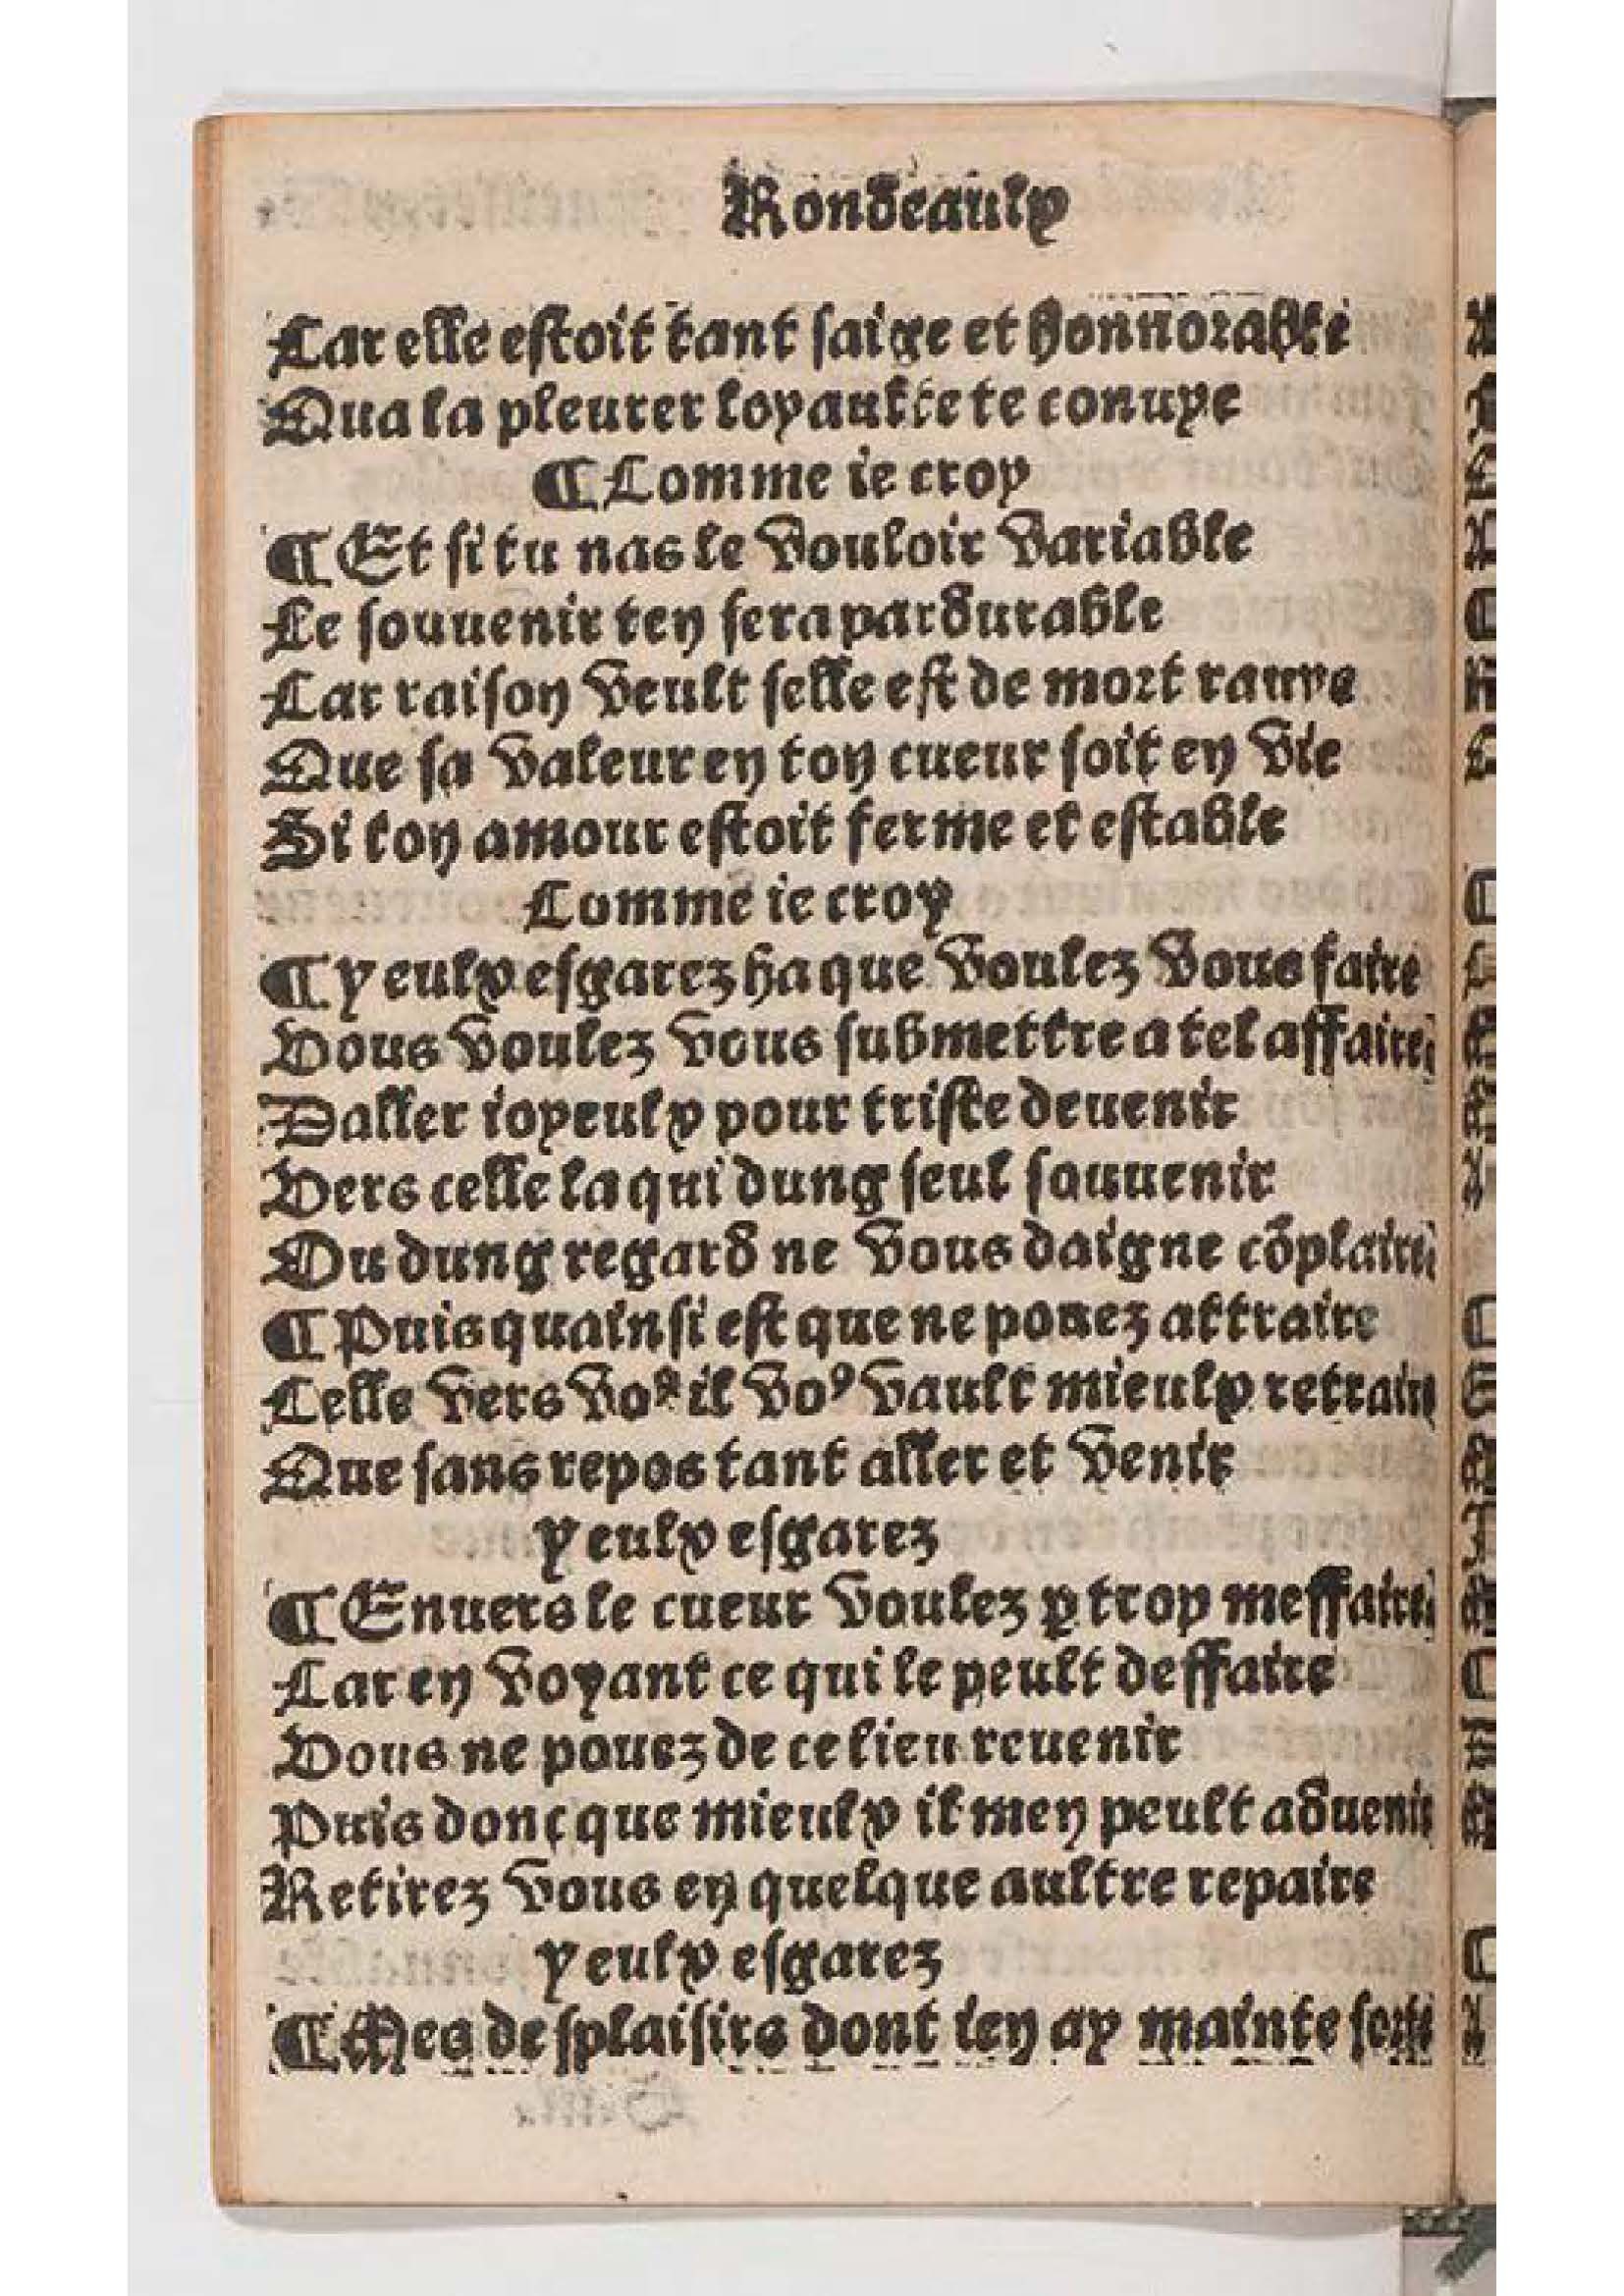 Rondeaulx
Car elle estoit tant saige et honnorable
Qua la pleurer loyaulte te conuye
¶ Comme ie croy
¶ Et si tu nas le vouloir variable
Le souuenir ten sera pardurable
Car raison veult selle est de mort rauye
Que sa valeur en ton cueur soit en vie
Si ton amour estoit ferme et estable
Comme ie croy
¶ Yeulx esgarez ha que voulez vous faire
Vous voulez vous submettre a tel affaire
Daller ioyeulx pour triste deuenir
Vers celle la qui dung seul souuenir
Ou dung regard ne vous daigne cõplaire
¶ Puis quainsi est que ne pouez attraire
Celle vers voꝰ il voꝰ vault mieulx retraire
Que sans repos tant aller et venir
Yeulx esgarez
¶ Enuers le cueur voulez ꝑ trop meffaire
Car en voyant ce qui le peult deffaire
Vous ne pouez de ce lieu reuenir
Puis donc que mieulx il men peult aduenir
Retirez vous en quelque aultre repaire
Yeulx esgarez
¶ Mes desplaisirs dont ien ay mainte sorte